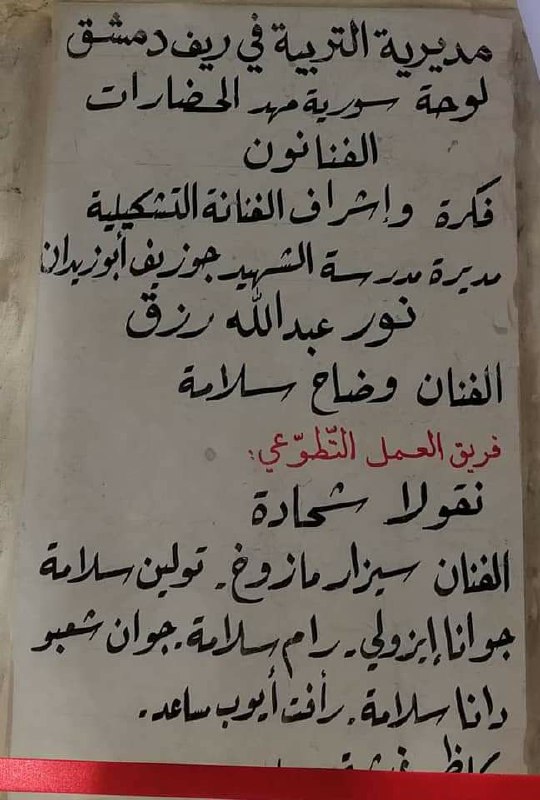 مديرية التربية في ريف دمشق
لوحة سورية مهد الحضارات
الفنانون
فكرة وإشراف الفنانة التشكيلية
مديرة مدرسة الشهيد جوزيف أبوزيدان
نور عبدالله رزق
الفنان وضاح سلامة
فريق العمل التّطوّعي:
نقولا شحادة
الفنان سيزار مازوخ. تولين سلامة
جوانا إيزولي. رام سلامة. جوان شعبو
دانا سلامة. رأفت أيوب ساعد.